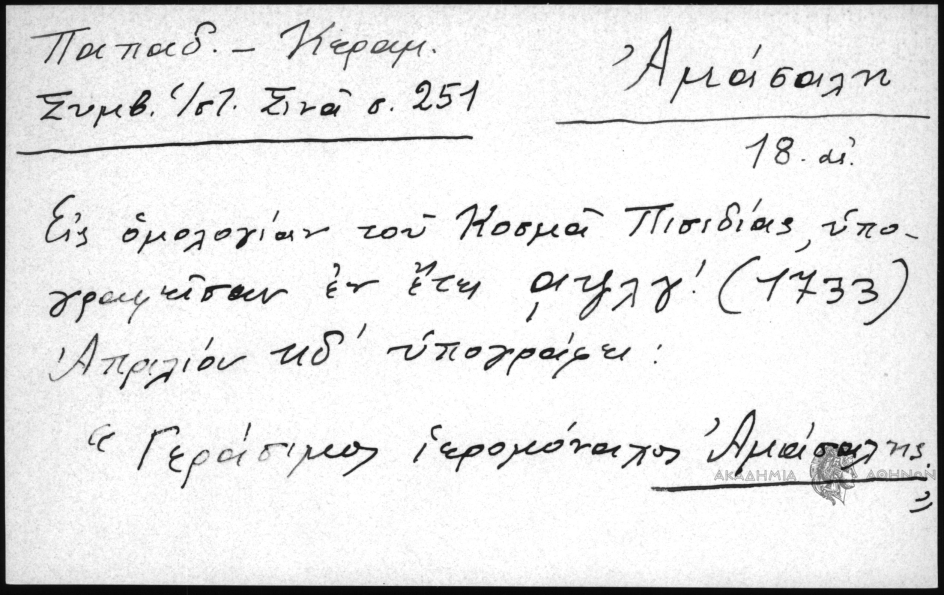 Παπαδ. – Κεραμ.
Συμβ. Ἱστ. Σινᾶ σ. 251
Ἀμάσαλη
18. αἰ.
Εἰς ὁμολογίαν τοῦ Κοσμᾶ Πισιδίας, ὑπο-
γραφεῖσαν ἐν ἔτει ͵αψλγ! (1733)
Ἀπριλίου κδ' ὑπογράφει :
"Γεράσιμος ἱερομόναχος Ἀμάσαλης."
ΑΚΑΔΗΜΙΑ ΑΘΗΝΩΝ